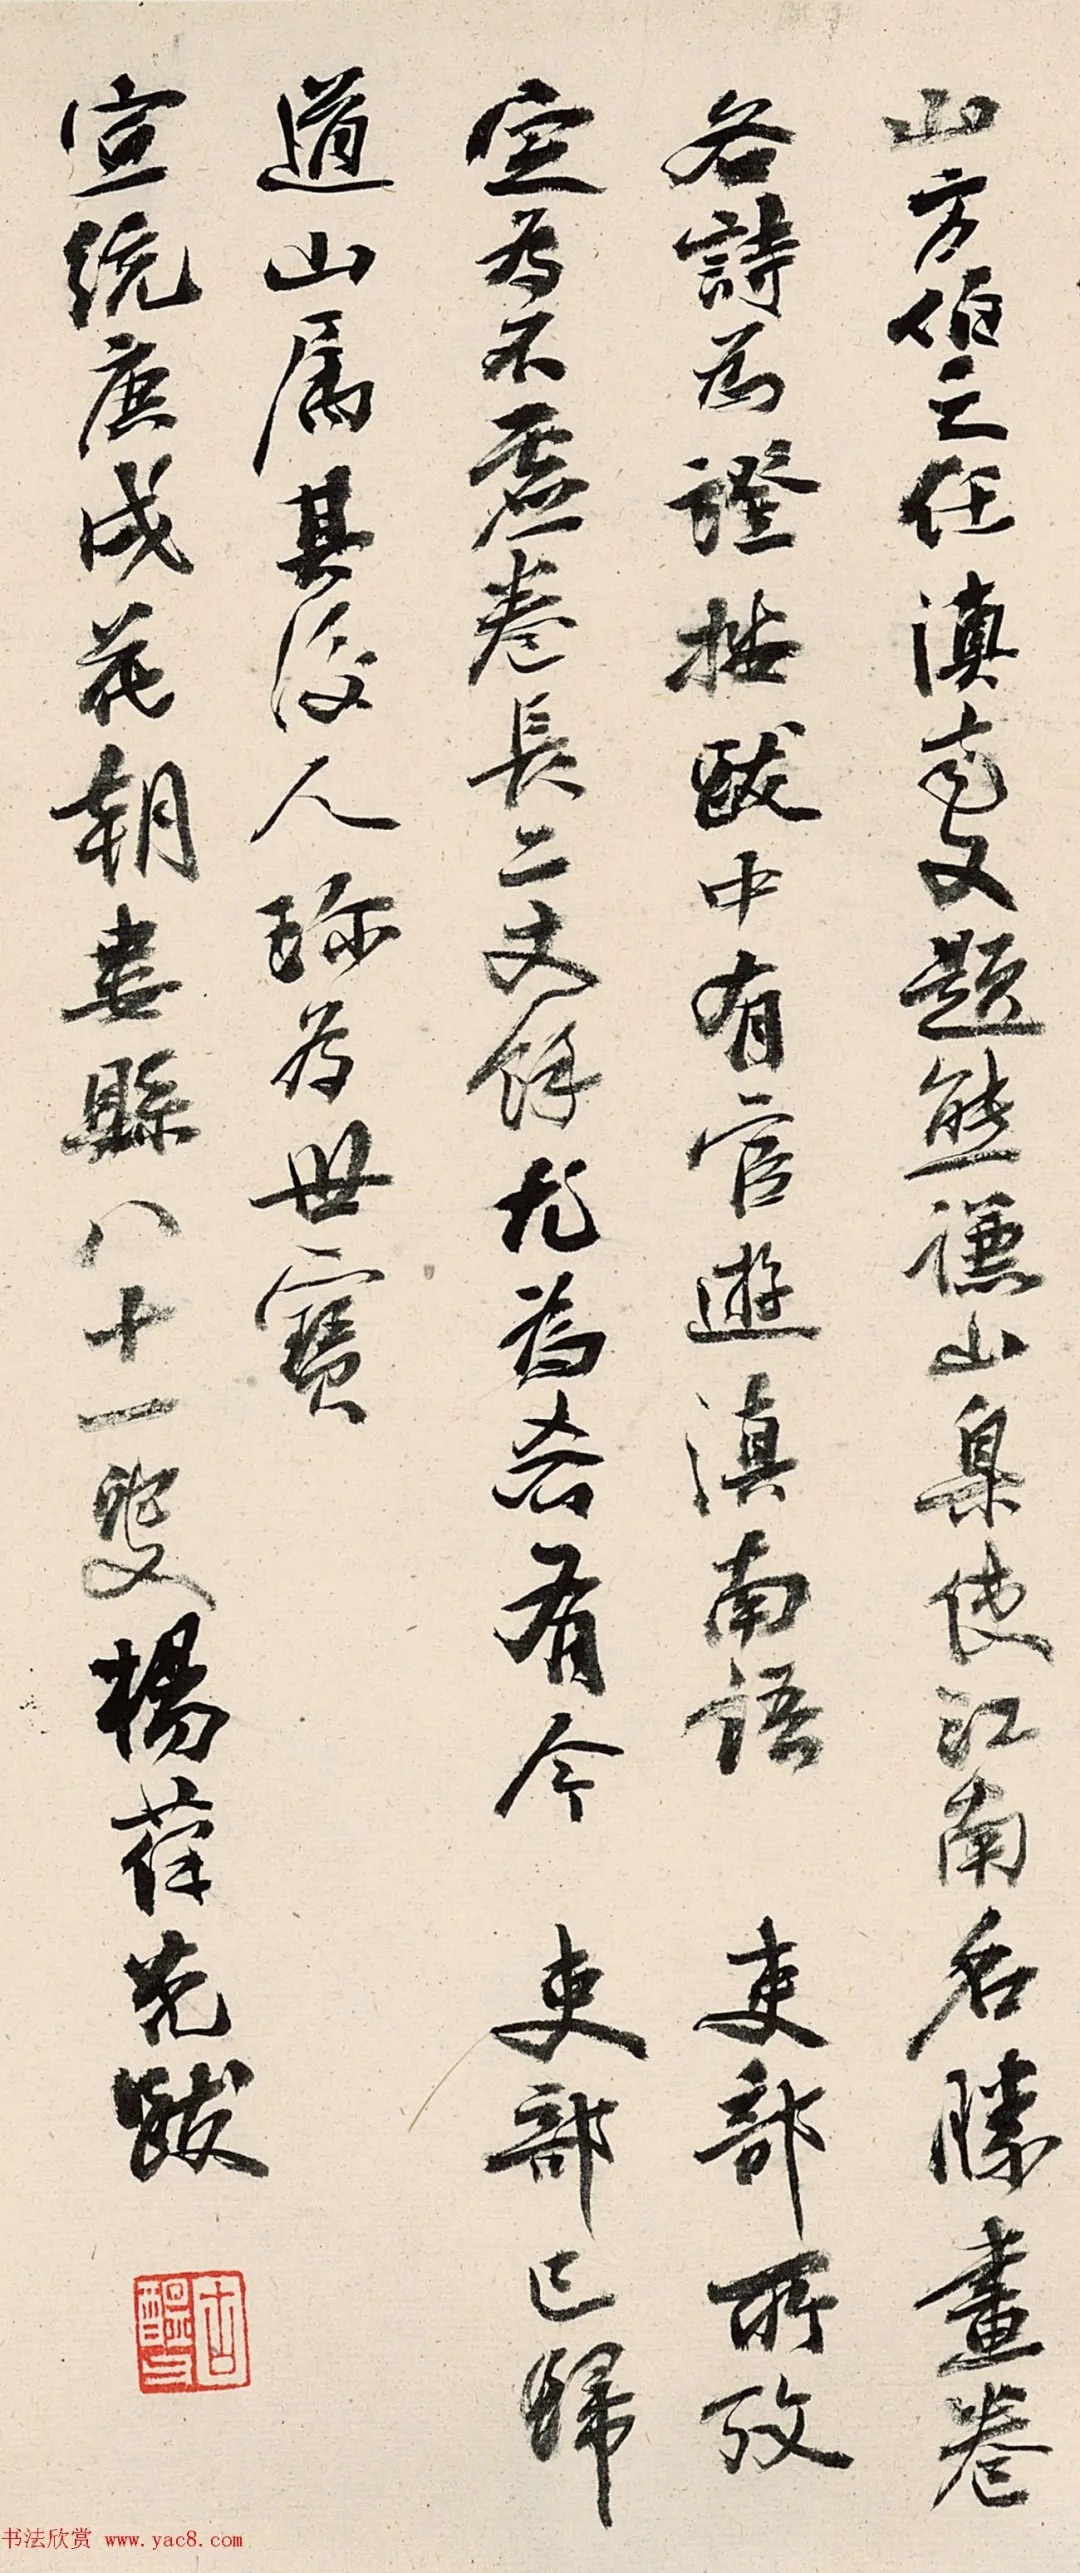 山方伯之任滇南又題熊謙山臬使江南名勝畫卷
各詩為證拙跋中有官遊滇南語 吏部所攷
定為不虛卷長二丈餘尤為希有今 吏部已歸
道山屬其後人珍為世寶
宣統庚戌花朝婁縣八十一叟楊葆光跋
書法欣赏 www.yac8.com